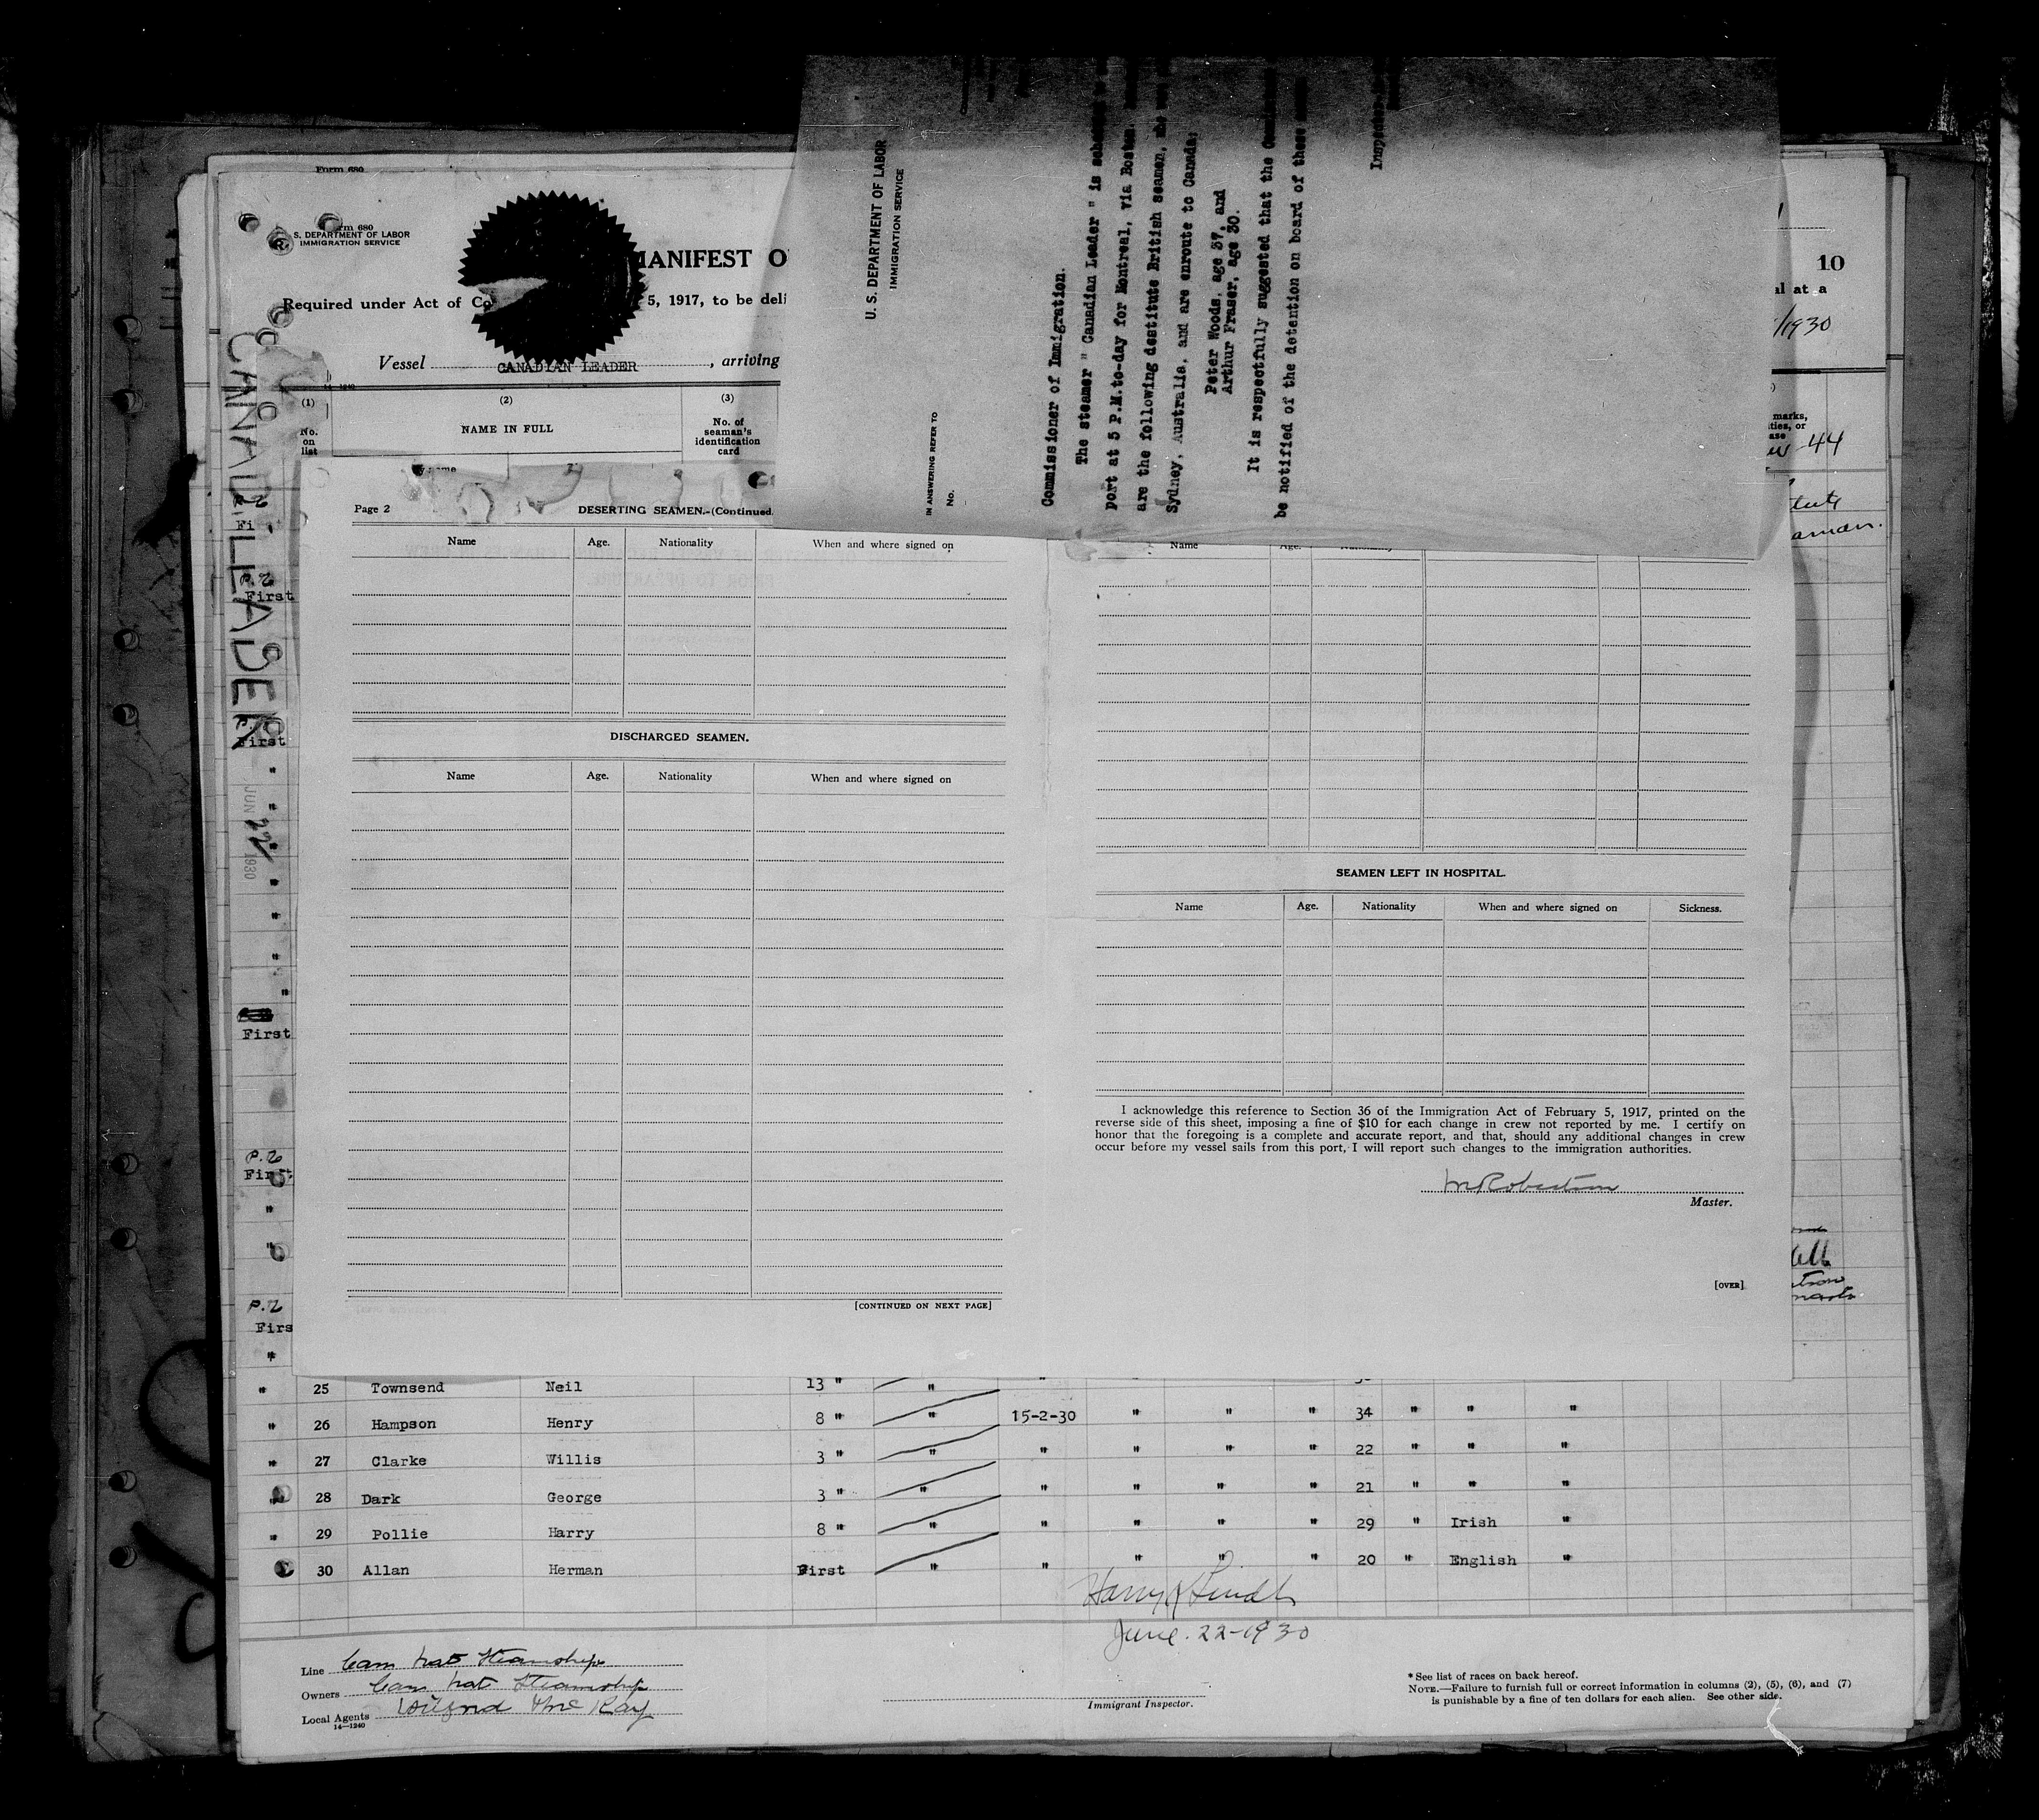 Form 680
Form 680
S. DEPARTMENT OF LABOR
IMMIGRATION SERVICE
MANIFEST O
Required under Act of Co 5, 1917, to be deli
Vessel CANADIAN LEADER , arriving
14-1240
(1) (2) (3)
No. on list
NAME IN FULL
No. of seaman's identification card
10
al at a
/1930
marks,
ities, or
ase
44
CANAD. LEADER
JUN 22 1930
U. S. DEPARTMENT OF LABOR
IMMIGRATION SERVICE
IN ANSWERING REFER TO
No.
Commissioner of Immigration.
The steamer " Canadian Leader " is
port at 5 P.M.to-day for Montreal, via Boston.
are the following destitute British seamen,
Sydney, Australia, and are enroute to Canada:
Peter Woods, age 37, and
Arthur Fraser, age 30.
It is respectfully suggested that the
be notified of the detention on board of these
Inspector
Page 2 DESERTING SEAMEN.-(Continued
Name Age. Nationality When and where signed on
DISCHARGED SEAMEN.
Name Age. Nationality When and where signed on
[CONTINUED ON NEXT PAGE]
Name Age. Nationality
SEAMEN LEFT IN HOSPITAL.
Name Age. Nationality When and where signed on Sickness.
I acknowledge this reference to Section 36 of the Immigration Act of February 5, 1917, printed on the
reverse side of this sheet, imposing a fine of $10 for each change in crew not reported by me. I certify on
honor that the foregoing is a complete and accurate report, and that, should any additional changes in crew
occur before my vessel sails from this port, I will report such changes to the immigration authorities.
Robertson
Master.
[OVER]
P.2
First
P.2
First
First
P.2
First
P.2
Firs
" 25 Townsend Neil 13 " "
" 26 Hampson Henry 8 " " 15-2-30 " " " 34 " " "
" 27 Clarke Willis 3 " " " " " " 22 " " "
" 28 Dark George 3 " " " " " " 21 " " "
" 29 Pollie Harry 8 " " " " " " 29 " Irish "
30 Allan Herman First " " " " " 20 " English "
Harry
June. 22-1930
Line Can Nat Steamships
Owners Can Nat Steamship
Local Agents
14-1240
Immigrant Inspector.
* See list of races on back hereof.
NOTE.—Failure to furnish full or correct information in columns (2), (5), (6), and (7)
is punishable by a fine of ten dollars for each alien. See other side.